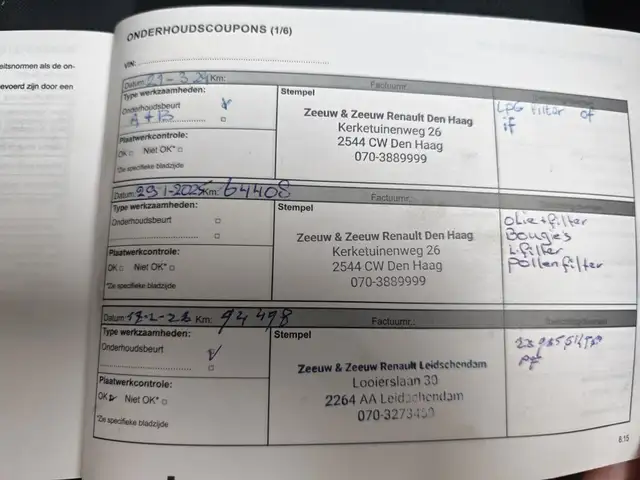 eitsnormen als de on-
evoerd zijn door een
ONDERHOUDSCOUPONS (1/6)
VIN:
Datum: 29-3-24 Km: Factuurnr.:
Type werkzaamheden:
Onderhoudsbeurt
A + B
Plaatwerkcontrole:
OK Niet OK*
*Zie specifieke bladzijde
Stempel
Zeeuw & Zeeuw Renault Den Haag
Kerketuinenweg 26
2544 CW Den Haag
070-3889999
LPG Filter of
if
Datum: 29-1-2025 Km: 64408 Factuurnr.:
Type werkzaamheden:
Onderhoudsbeurt
Plaatwerkcontrole:
OK Niet OK*
*Zie specifieke bladzijde
Stempel
Zeeuw & Zeeuw Renault Den Haag
Kerketuinenweg 26
2544 CW Den Haag
070-3889999
Olie+filter
Bougie's
L.filter
pollenfilter
Datum: Km: 94498 Factuurnr.:
Type werkzaamheden:
Onderhoudsbeurt
Plaatwerkcontrole:
OK Niet OK*
*Zie specifieke bladzijde
Stempel
Zeeuw & Zeeuw Renault Leidschendam
Looierslaan 30
2264 AA Leidschendam
pf
8.15